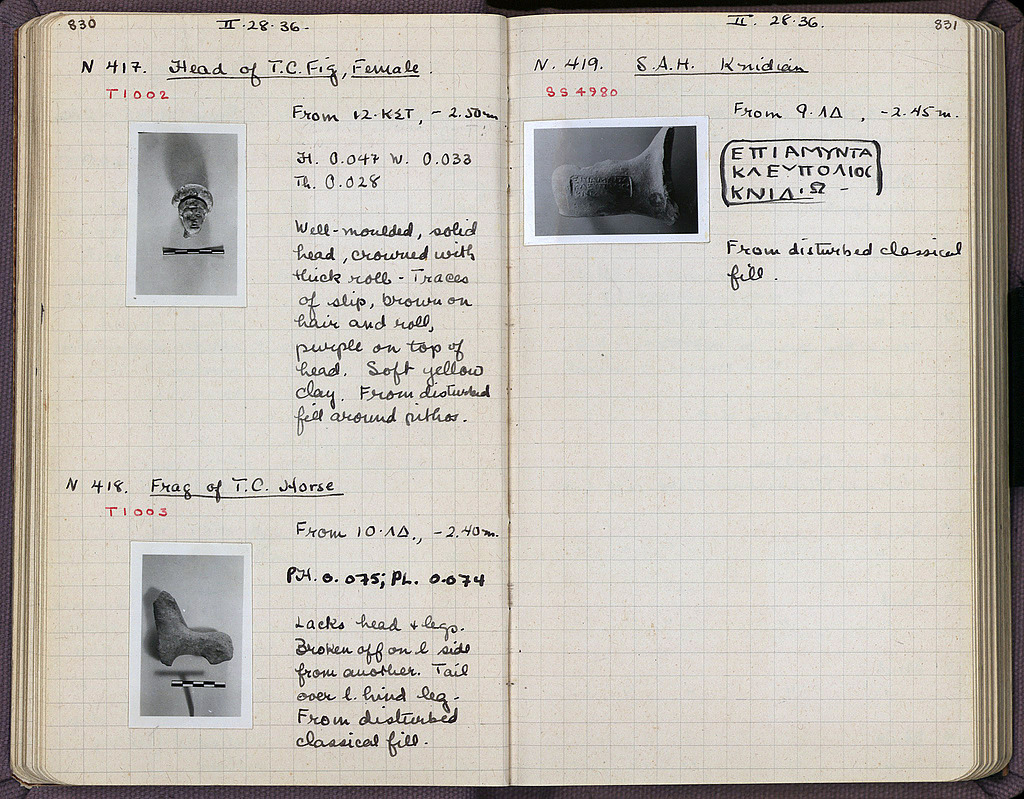 830
II·28·36·
N 417. Head of T.C. Fig, Female.
T1002
From 12·ΚΣΤ, -2.50m
H. 0.047 W. 0.033
Th. 0.028
Well-moulded, solid
head, crowned with
thick roll - Traces
of slip, brown on
hair and roll,
purple on top of
head. Soft yellow
clay. From disturbed
fill around pithos.
N 418. Frag of T.C. Horse
T1003
From 10·ΛΔ., -2.40m.
PH. 0.075; PL. 0.074
Lacks head + legs.
Broken off on l side
from another. Tail
over l. hind leg.
From disturbed
classical fill.
II. 28·36.
831
N. 419. S.A.H. Knidian
SS 4980
From 9·ΛΔ, -2.45m.
ΕΠΙΑΜΥΝΤΑ
ΚΛΕΥΠΟΛΙΟC
ΚΝΙΔΙΩ -
From disturbed classical
fill.